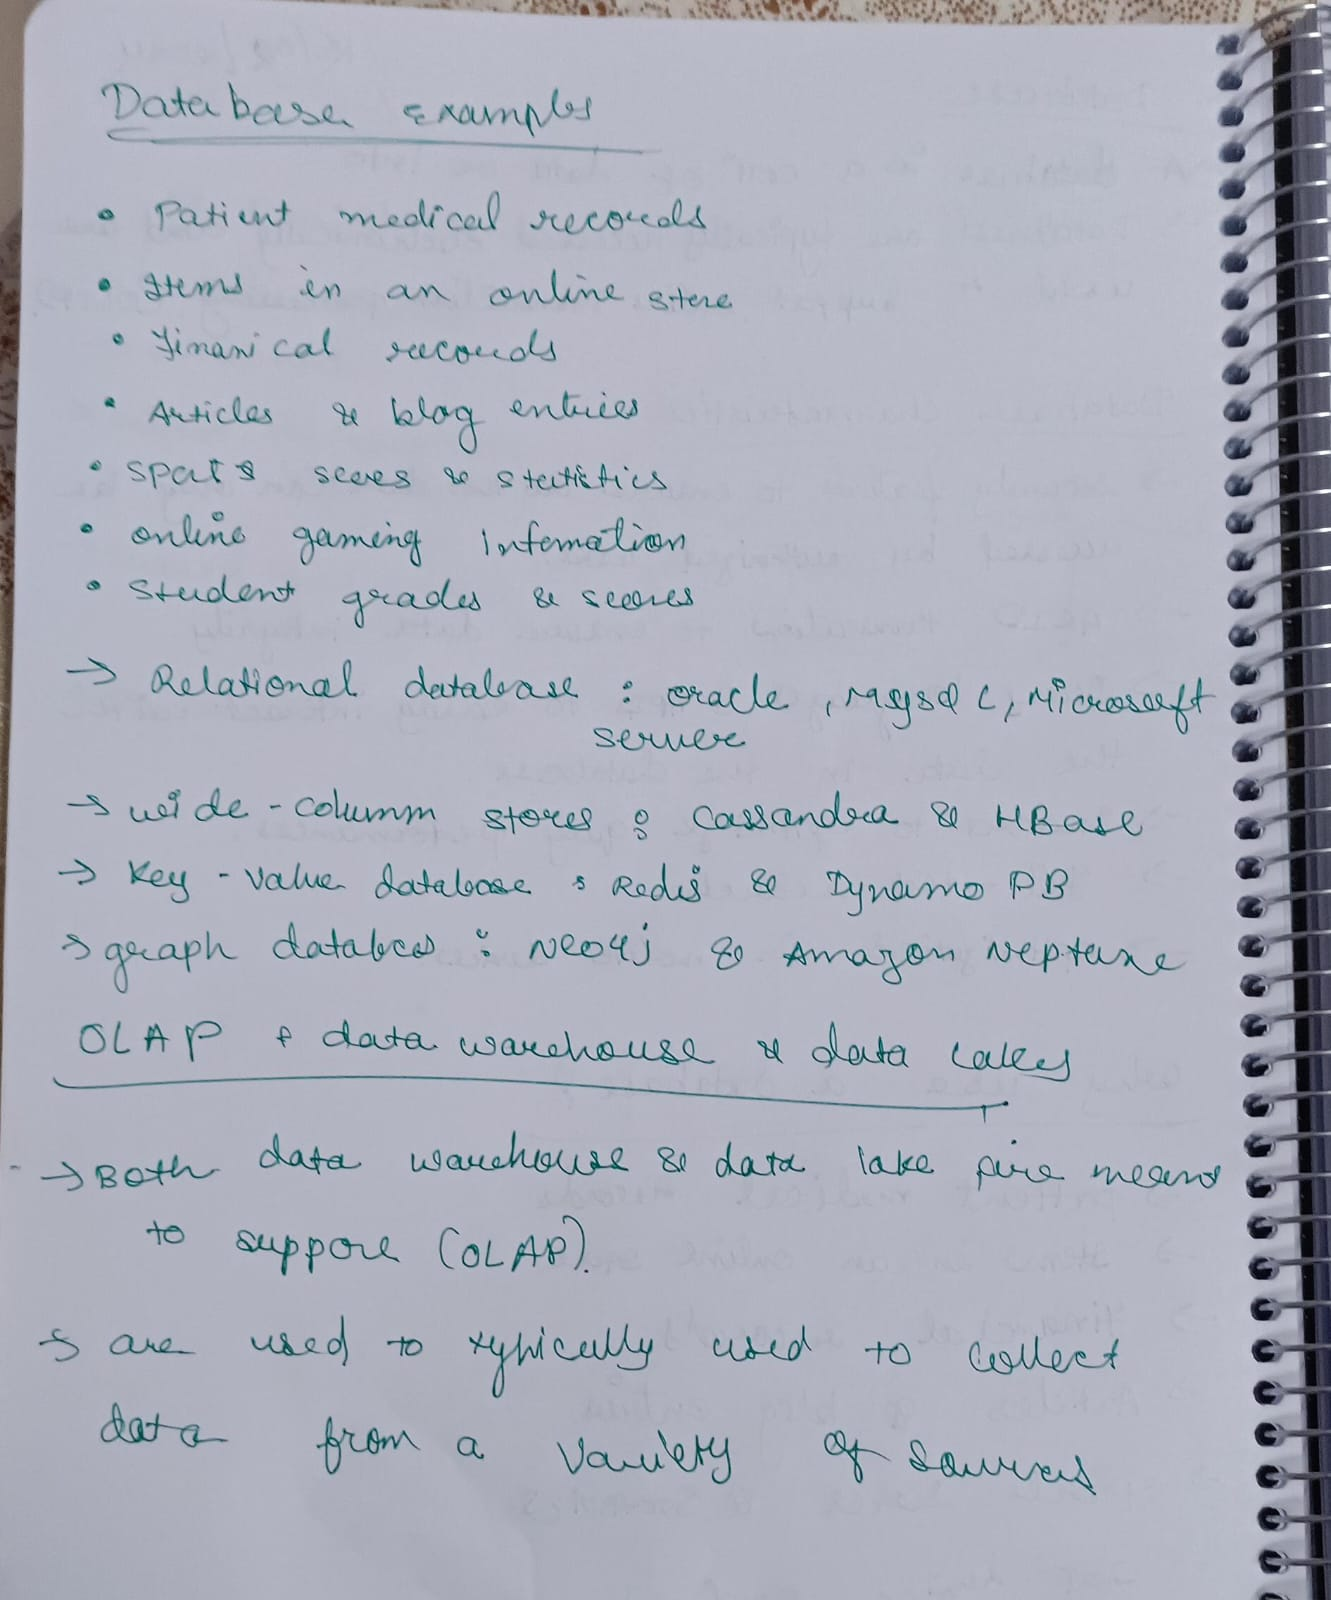 Database examples
• Patient medical records
• Items in an online store
• Finanical records
• Articles & blog entries
• Sports scores & statistics
• online gaming Information
• Student grades & scores
→ Relational database : oracle, MySQL, Microsoft
server
→ wide-column stores : Cassandra & HBase
→ Key-value database : Redis & Dynamo DB
→ graph databases : Neo4j & Amazon Neptune
OLAP & data warehouse & data lakes
→ Both data warehouse & data lake are means
to suppore (OLAP).
→ are used to typically used to collect
data from a variety of sources